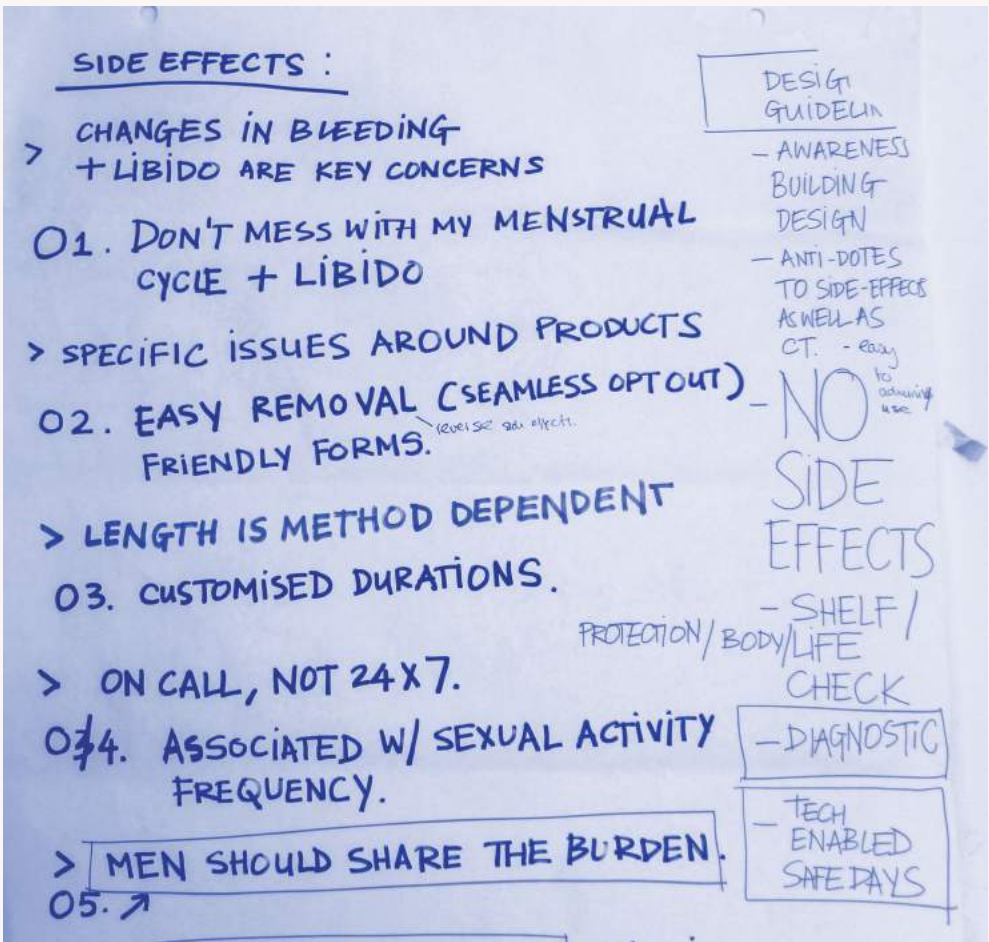 SIDE EFFECTS :
> CHANGES IN BLEEDING
+ LIBIDO ARE KEY CONCERNS
01. DON'T MESS WITH MY MENSTRUAL
CYCLE + LIBIDO
> SPECIFIC ISSUES AROUND PRODUCTS
02. EASY REMOVAL (SEAMLESS OPT OUT)
reverse
FRIENDLY FORMS.
> LENGTH IS METHOD DEPENDENT
03. CUSTOMISED DURATIONS.
> ON CALL, NOT 24 X 7.
04. ASSOCIATED W/ SEXUAL ACTIVITY
FREQUENCY.
> MEN SHOULD SHARE THE BURDEN.
05.
DESIG
GUIDELIN
- AWARENESS
BUILDING
DESIGN
- ANTI-DOTES
TO SIDE-EFFECTS
AS WELL AS
CT. - easy
to
use
- NO
SIDE
EFFECTS
- SHELF /
PROTECTION / BODY / LIFE
CHECK
- DIAGNOSTIC
- TECH
ENABLED
SAFE DAYS